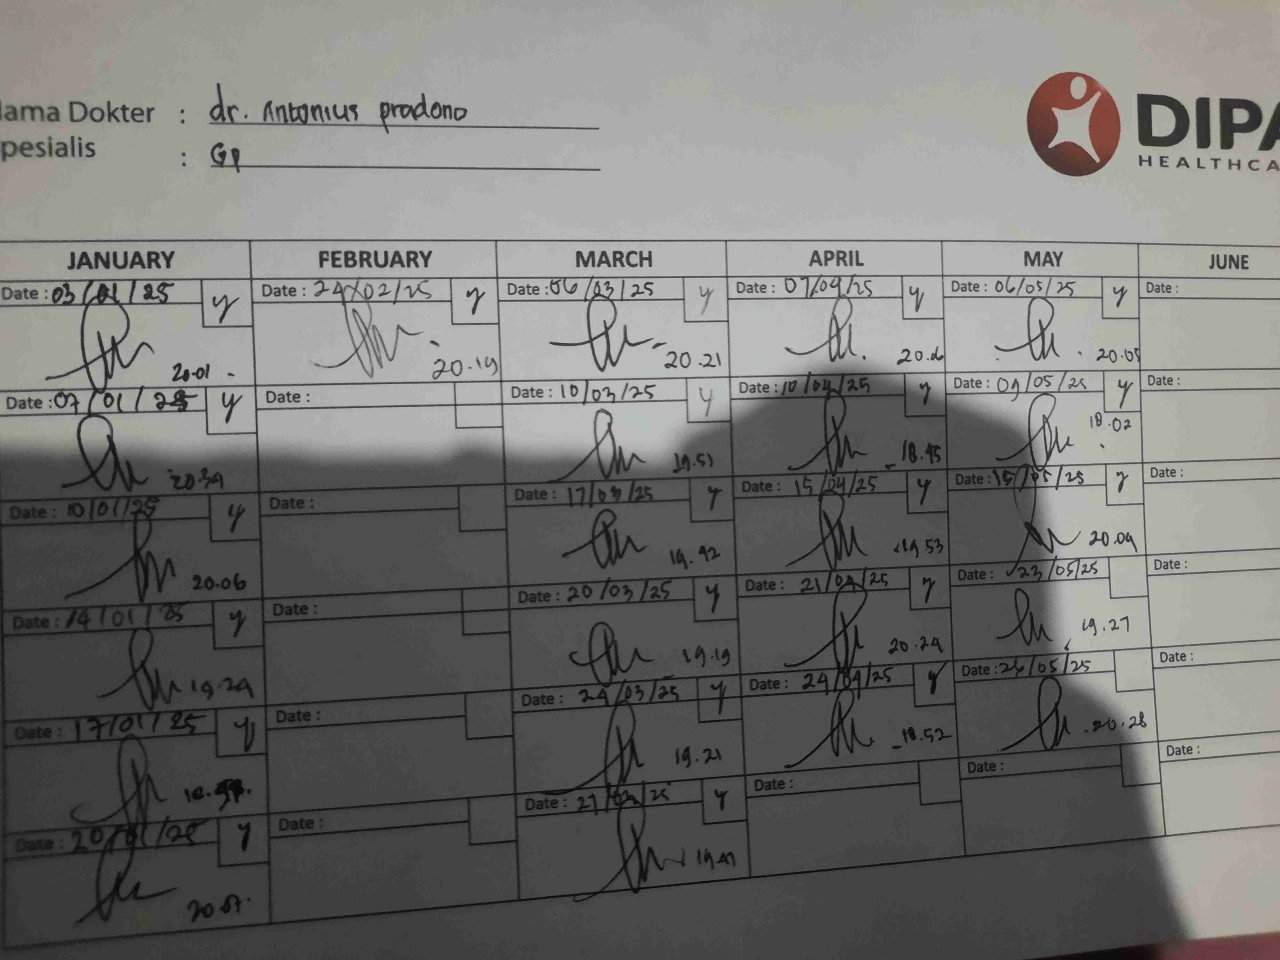 ama Dokter : dr. Antonius pradono
pesialis : GP
DIPA
HEALTHCA
JANUARY FEBRUARY MARCH APRIL MAY JUNE
Date : 03/01/25 y Date : 24/02/25 y Date : 06/03/25 y Date : 07/04/25 y Date : 06/05/25 y Date :
20.01 20.19 20.21 20.
Date : 07/01/25 y Date : Date : 10/03/25 y Date : 10/04/25 y Date : 09/05/25 y Date :
20.39 19.51 18.45 18.02
Date : 10/01/25 y Date : Date : 17/03/25 y Date : 15/04/25 y Date : 15/05/25 y Date :
20.06 19.42 19.53 20.09
Date : 14/01/25 y Date : Date : 20/03/25 y Date : 21/04/25 y Date : 23/05/25 Date :
19.29 19.19 20.24 19.27
Date : 17/01/25 y Date : Date : 24/03/25 y Date : 24/04/25 y Date : 26/05/25 Date :
19.21 18.52 20.28
Date : 20/01/25 y Date : Date : 27/03/25 y Date : Date : Date :
20.07 19.41